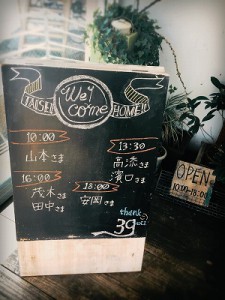 TAISEI
Welcome
HOME!!
10:00
山本さま
13:30
高添さま
濱口さま
16:00
茂木さま
田中さま
18:00
安岡さま
thank
39
OPEN
10:00-18:00